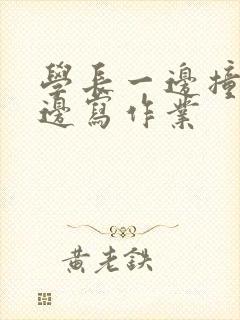 學長一邊撞
邊寫作業
黃老鉄